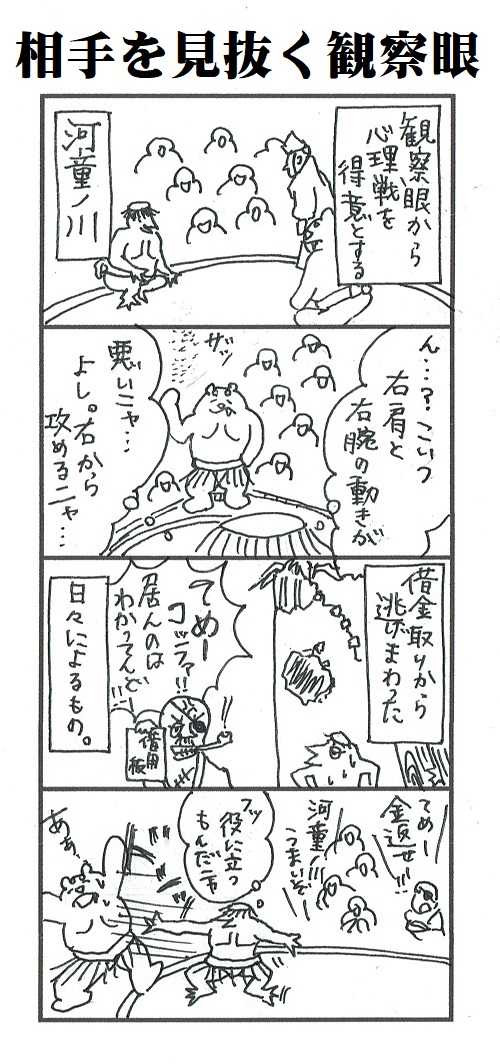 相手を見抜く観察眼
観察眼から
心理戦を
得意とする
河童ノ川
ん…?こいつ
右肩と
右腕の動きが
ザッ
悪いニャ…
よし。右から
攻めるニャ…
借金取りから
逃げまわった
てめー
コッラァ!!
居んのは
わかってんぞ
借用
日々によるもの。
てめー
金返せ!!
河童ノ川
うまいぞー
フッ
役に立つ
もんだニャ
あぁ、